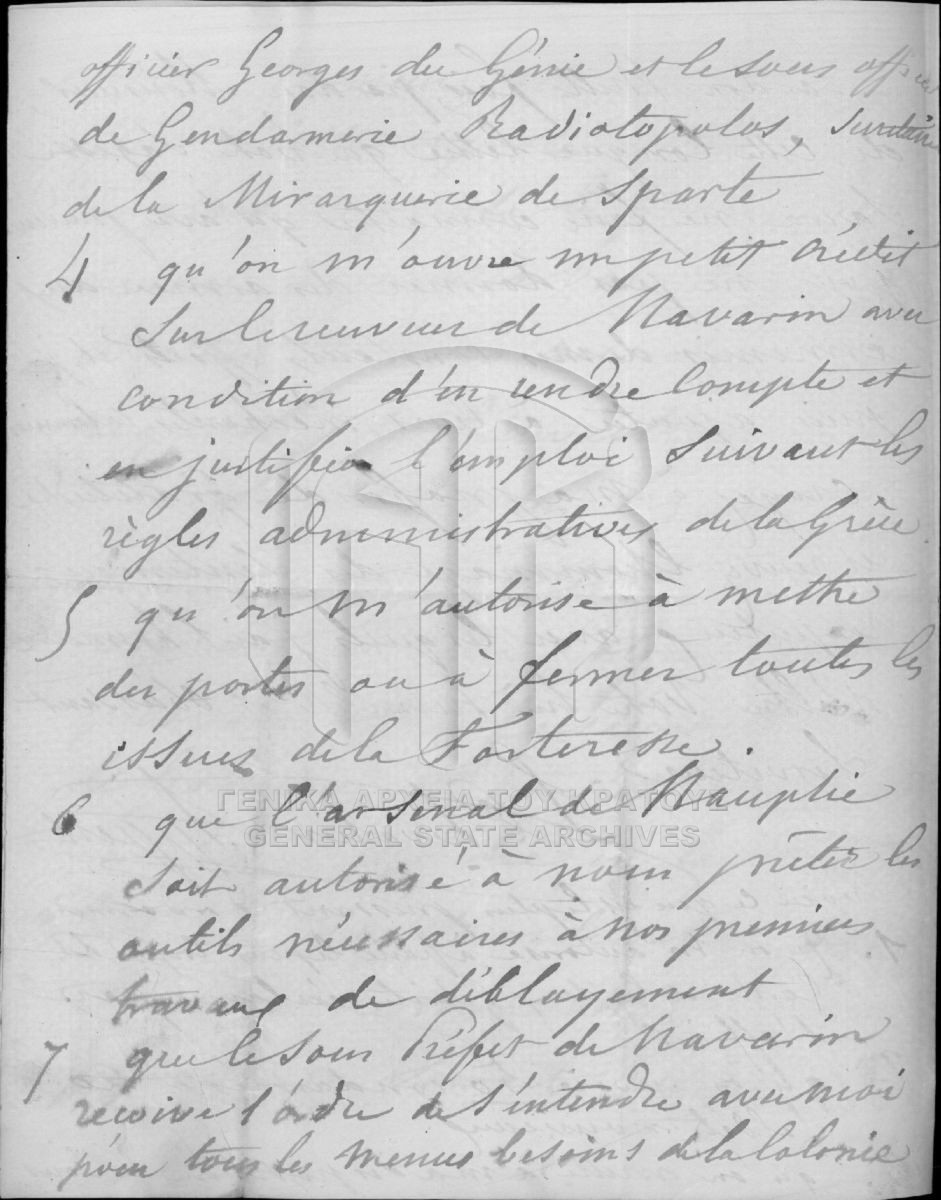 officier Georges du Génie et le sous officier
de Gendarmerie Radiotopolos,
de la Mirarquerie de Sparte
4 qu'on m'ouvre un petit crédit
sur le receveur de Navarin avec
condition d'en rendre compte et
en justifier l'emploi suivant les
règles administratives de la Grèce
5 qu'on m'autorise à mettre
des portes ou à fermer toutes les
issues de la Forteresse.
6 que l'arsenal de Nauplie
soit autorisé à nous prêter les
outils nécessaires à nos premiers
travaux de déblayement
7 que le sous Préfet de Navarin
reçoive l'ordre de s'entendre avec moi
pour tous les menus besoins de la Colonie
ΓΕΝΙΚΑ ΑΡΧΕΙΑ ΤΟΥ ΚΡΑΤΟΥΣ
GENERAL STATE ARCHIVES